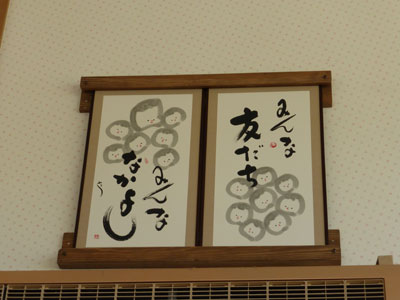 みんな
友だち
みんな
なかよし